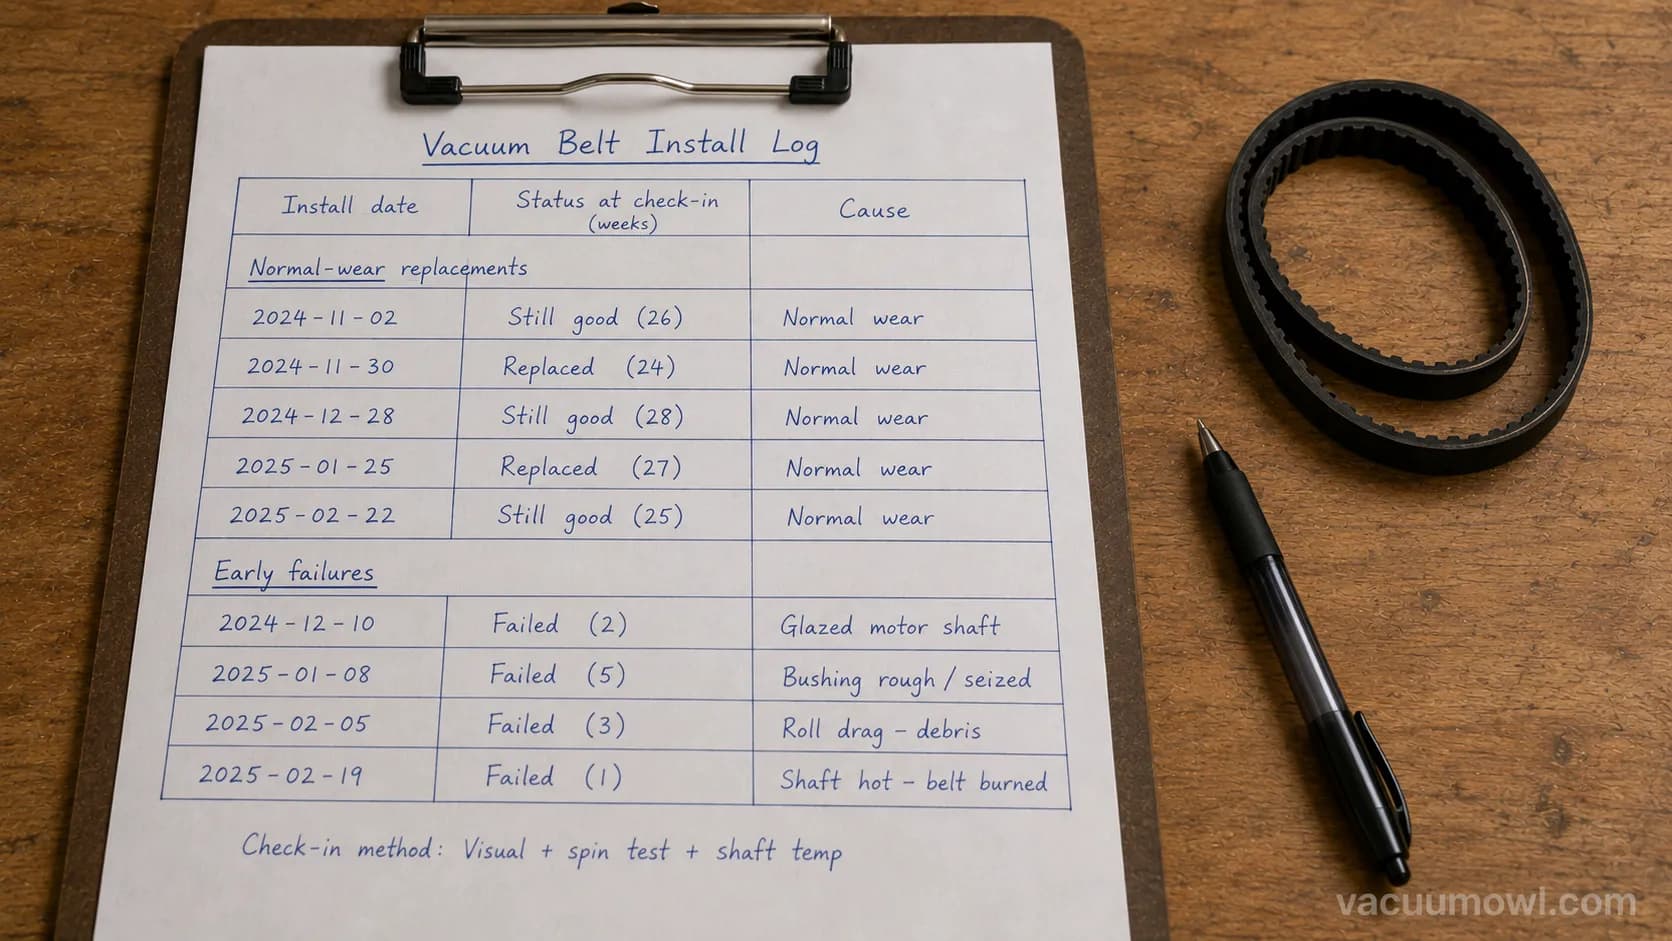 Vacuum Belt Install Log
Install date Status at check-in (weeks) Cause
Normal-wear replacements
2024-11-02 Still good (26) Normal wear
2024-11-30 Replaced (24) Normal wear
2024-12-28 Still good (28) Normal wear
2025-01-25 Replaced (27) Normal wear
2025-02-22 Still good (25) Normal wear
Early failures
2024-12-10 Failed (2) Glazed motor shaft
2025-01-08 Failed (5) Bushing rough / seized
2025-02-05 Failed (3) Roll drag - debris
2025-02-19 Failed (1) Shaft hot - belt burned
Check-in method: Visual + spin test + shaft temp
vacuumowl.com